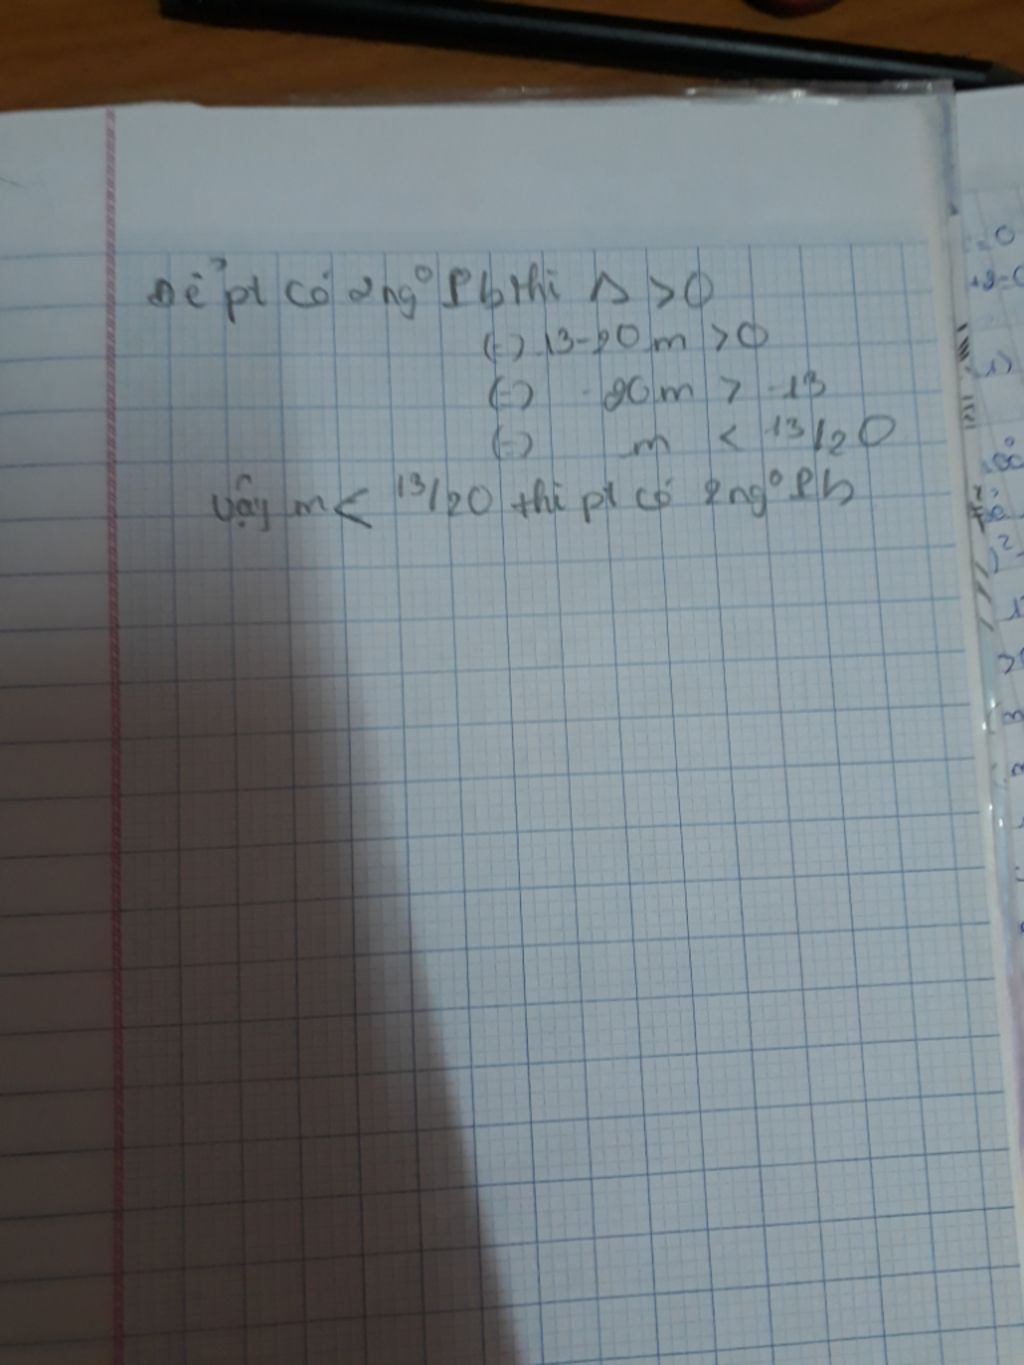 Để pt có 2 ngº Pb thì Δ > 0
(=) 13-20m > 0
(=) -20m > -13
(=) m < 13/20
Vậy m < 13/20 thì pt có 2 ngº Pb